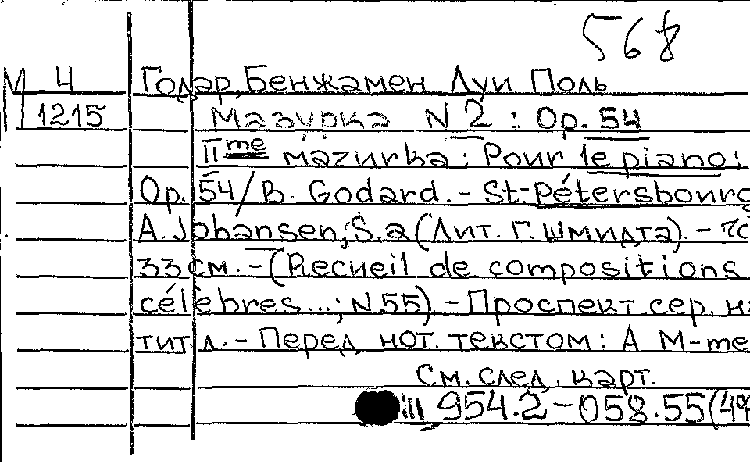 568
М 4 Годар, Бенжамен Луи Поль
1215 Мазурка N 2 : Op. 54
IIme mazurka : Pour le piano :
Op. 54 / B. Godard. - St-Pétersbourg
A. Johansen, S.a (Лит. Г. Шмидта). -
33 см. - (Recueil de compositions
célèbres...; N 55) - Проспект сер. на
тит л. - Перед нот. текстом: A M-me
См. след. карт.
954.2-058.55(4